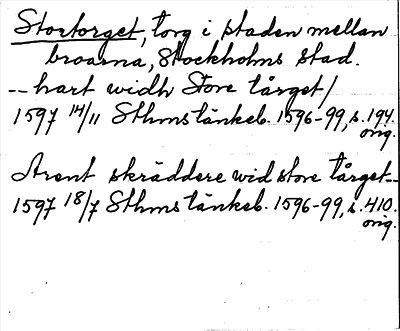 Stortorget, torg i staden mellan
broarna, Stockholms stad.
-- hart widh Store tårget/
1597 14/11 Sthms tänkeb. 1596-99, s. 194.
orig.
Arent skräddere wid store tårget--
1597 18/7 Sthms tänkeb. 1596-99, s. 410.
orig.